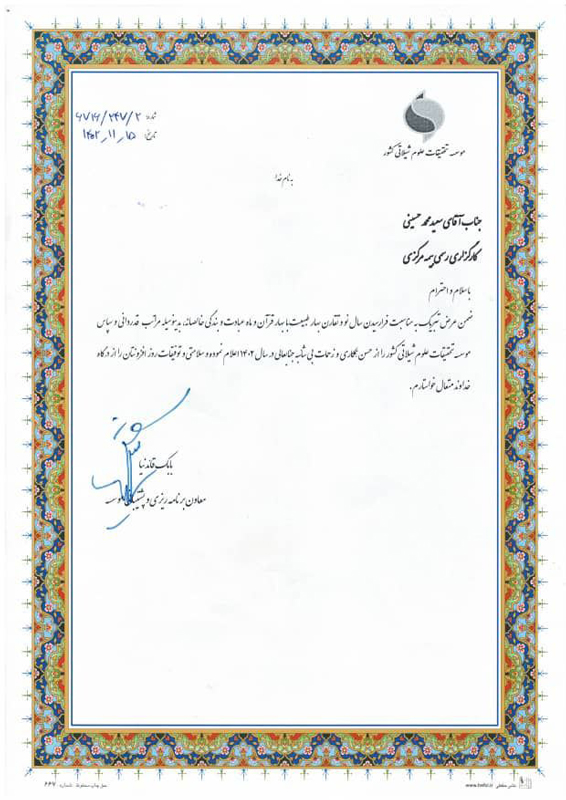 موسسه تحقیقات علوم شیلاتی کشور
شماره: ۲/۲۴۷/
تاریخ: ۱۴۰۲/۱۱/۱۵
به نام خدا
جناب آقای سعید محمد حسینی
کارگزاری رسمی بیمه مرکزی
با سلام و احترام
ضمن عرض تبریک به مناسبت فرارسیدن سال نو و تقارن بهار طبیعت با بهار قرآن و ماه عبادت و بندگی خالصانه، بدینوسیله مراتب قدردانی و سپاس
موسسه تحقیقات علوم شیلاتی کشور را از حسن همکاری و زحمات بی شائبه جنابعالی در سال ۱۴۰۲ اعلام نموده و سلامتی و توفیقات روز افزونتان را از درگاه
خداوند متعال خواستارم.
بابک قائدنیا
معاون برنامه ریزی و پشتیبانی موسسه
حق چاپ محفوظ شماره: ۶۴۷